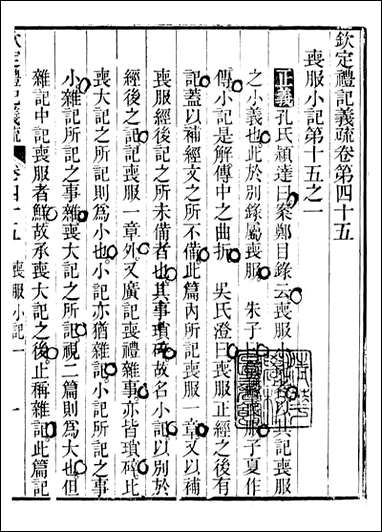 欽定禮記義疏卷第四十五
喪服小記第十五之一
正義孔氏穎達曰案鄭目錄云喪服小記者以其記喪服
之小義也此於別錄屬喪服 朱子曰 服子夏作
傳小記是解傳中之曲折 吳氏澄曰喪服正經之後有
記蓋以補經文之所不備此篇內所記喪服一章又以補
喪服經後記之所未備者也其事瑣碎故名小記以別於
經後之記記喪服一章外又廣記喪禮雜事亦皆瑣碎比
喪大記之所記則爲小也小記亦猶雜記小記所記之事
小雜記所記之事雜喪大記之所記視二篇則爲大也但
雜記中記喪服者鮮故承喪大記之後止稱雜記此篇記
欽定禮記義疏 卷四十五 喪服小記一 一